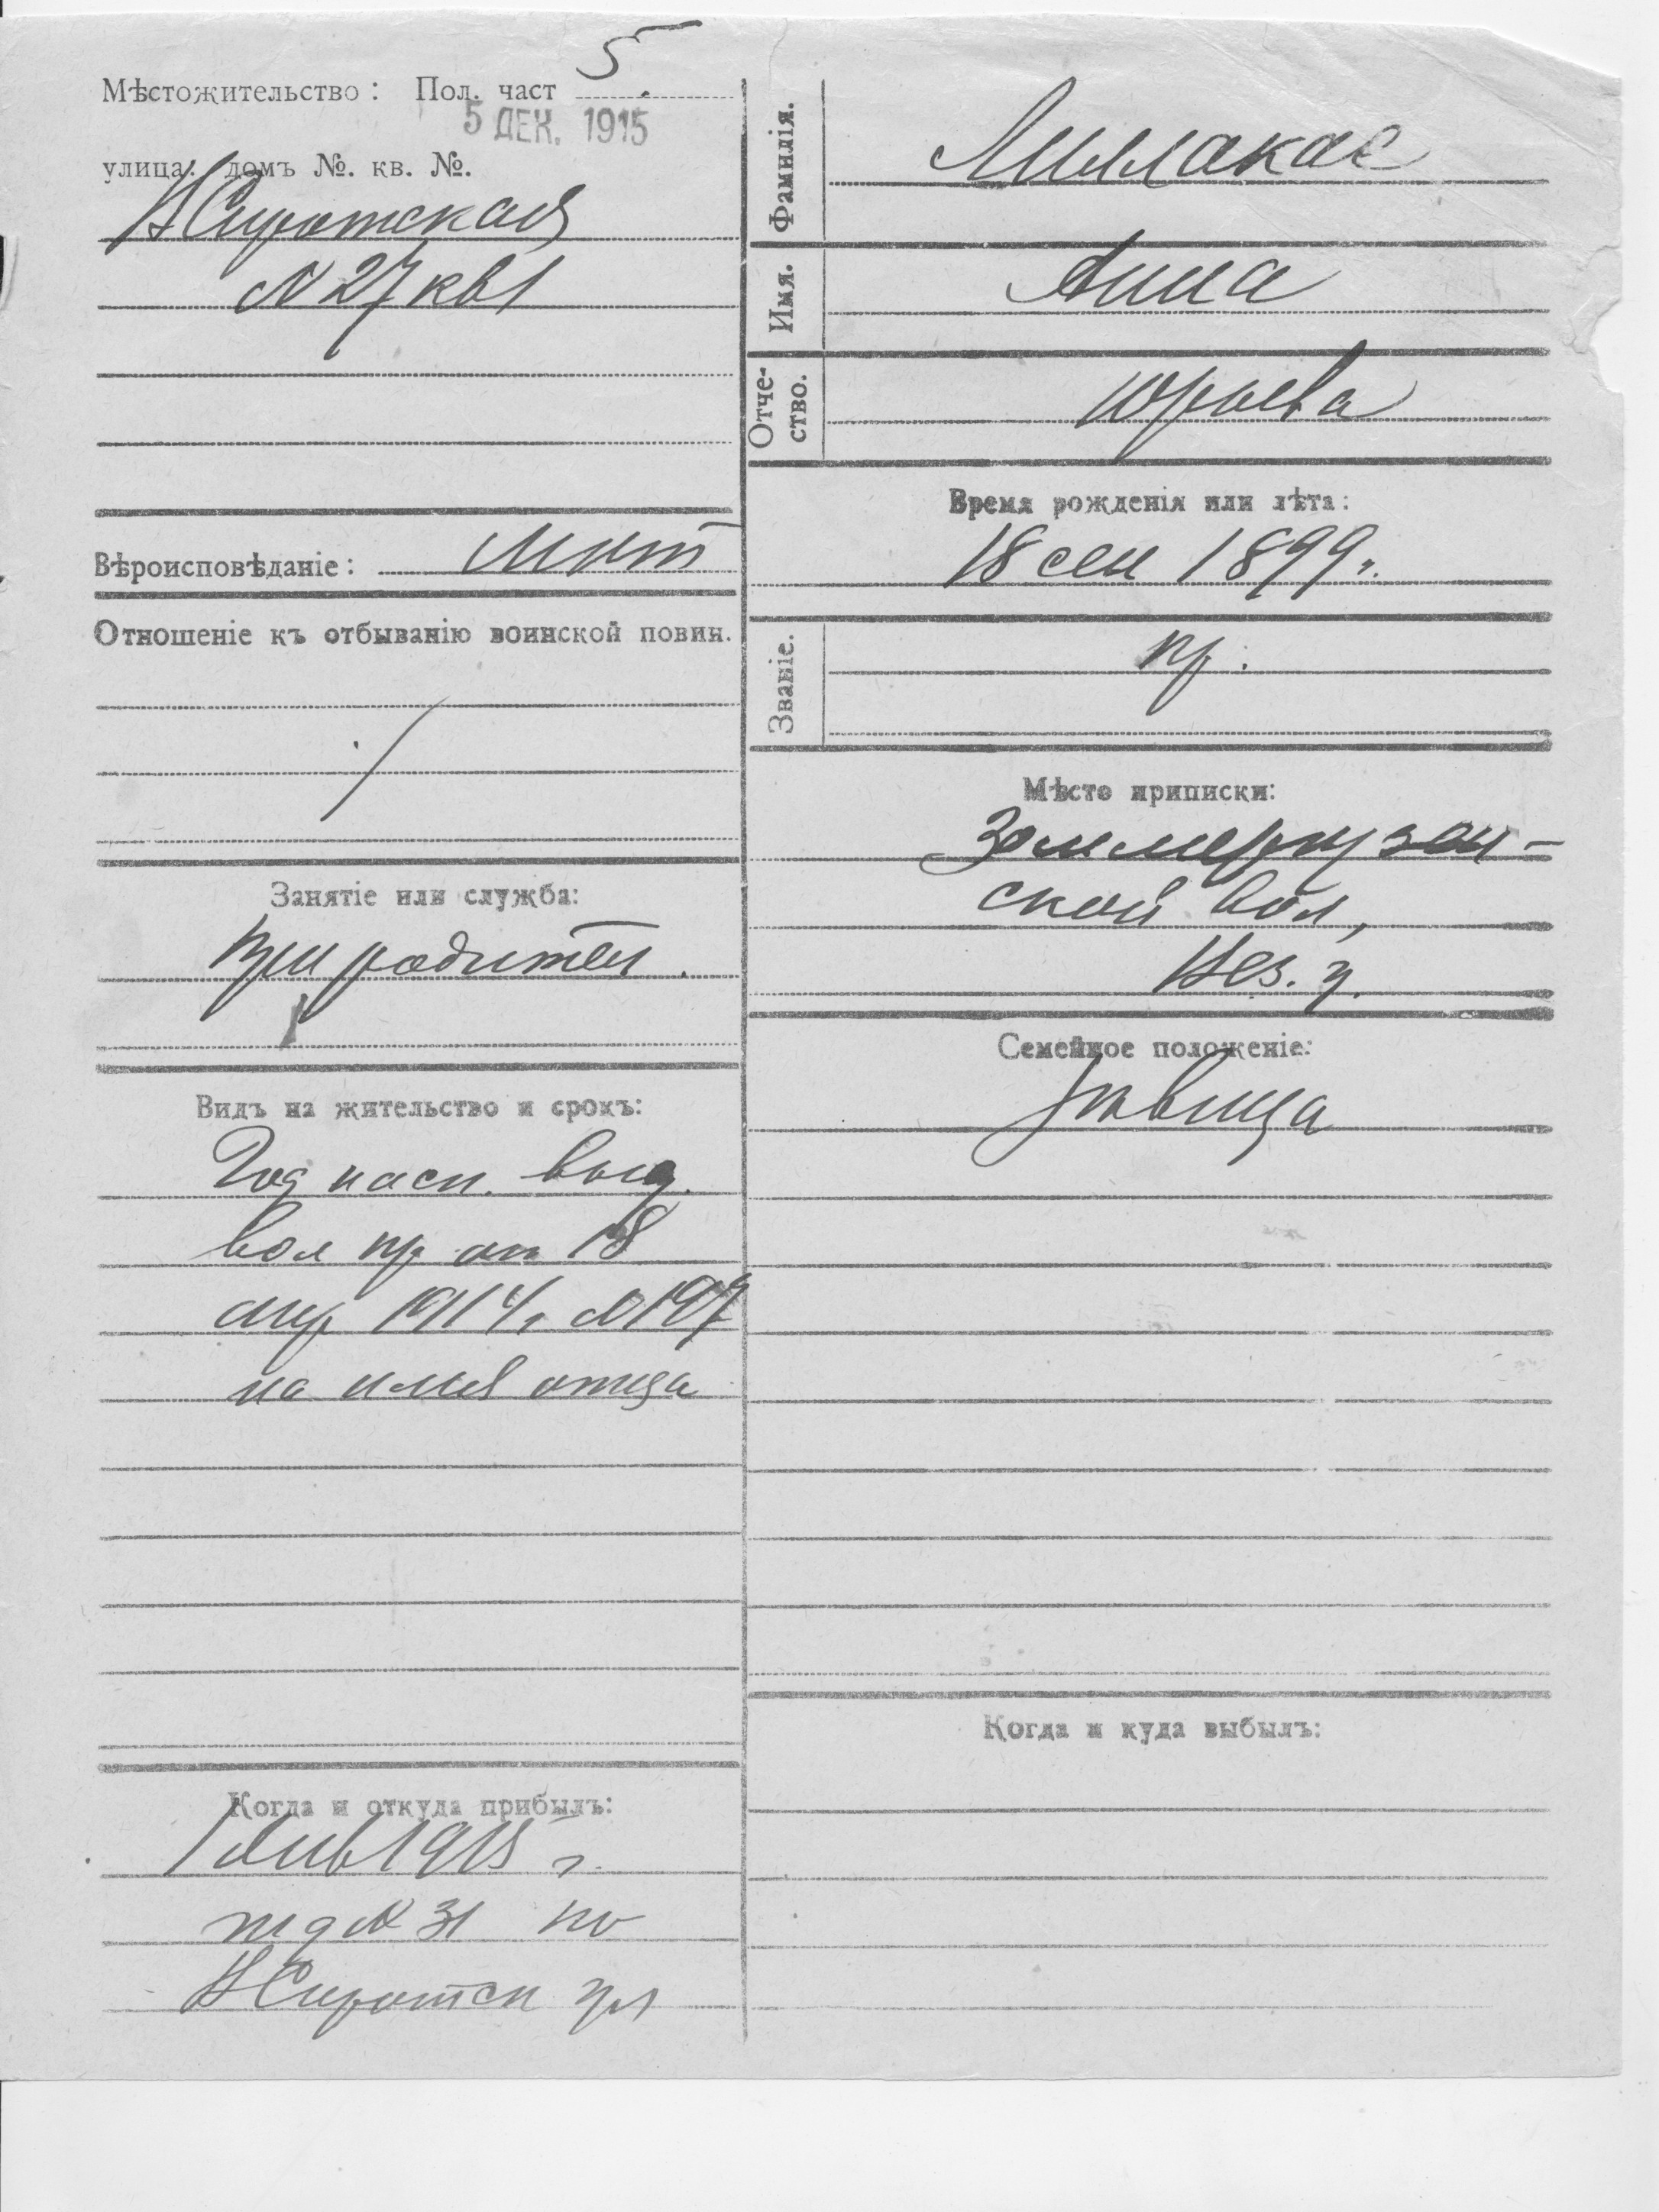 5
Мѣстожительство: Пол. част
5 ДЕК. 1915
улица: домъ №. кв. №.
Н Сиротская
N 27 кв 1
Вѣроисповѣданіе: лют
Отношеніе къ отбыванію воинской повин.
/
Занятіе или служба:
при родител.
Видъ на жительство и срокъ:
Год пасп. выд.
вол пр от 18
апр 1914 г N 197
на имя отца
Когда и откуда прибылъ:
1 Янв 1915 г.
из д N 31 по
Н Сиротск ул
Фамилія.
Лиллакас
Имя.
Анна
Отче-
ство.
Юрьева
Время рожденія или лѣта:
18 сен 1899 г.
Званіе.
кр.
Мѣсто приписки:
Зоммерпузен-
ской вол,
Вез. у.
Семейное положеніе:
дѣвица
Когда и куда выбылъ: